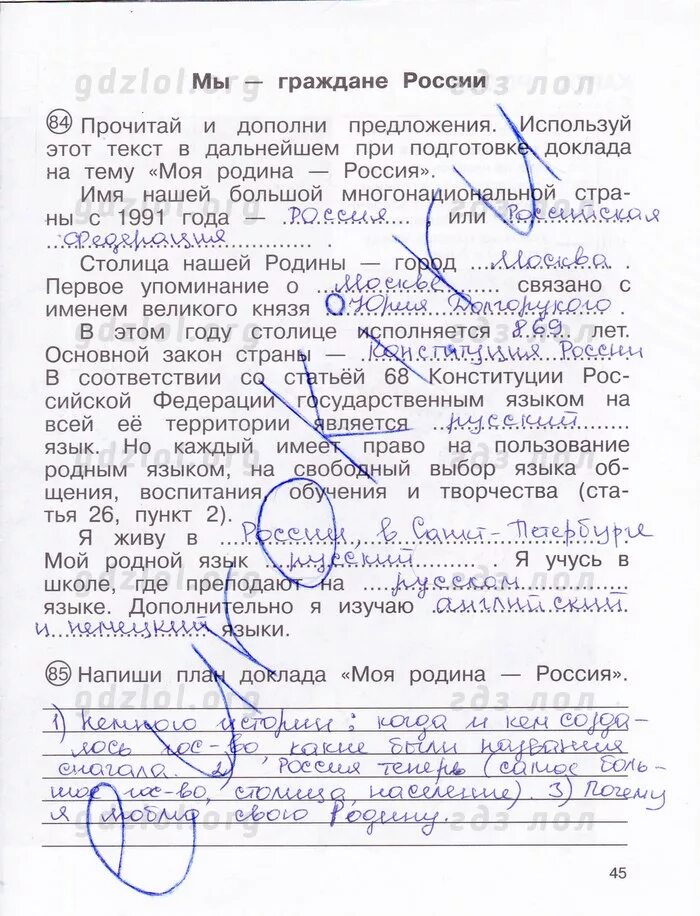 gdzlol.org гдз лол
Мы — граждане России
84 Прочитай и дополни предложения. Используй
этот текст в дальнейшем при подготовке доклада
на тему «Моя родина — Россия».
Имя нашей большой многонациональной стра-
ны с 1991 года — Россия, или Российская
Федерация.
gdzlol.org гдз лол
Столица нашей Родины — город Москва.
Первое упоминание о Москве связано с
именем великого князя Юрия Долгорукого.
gdzlol.org гдз лол
В этом году столице исполняется 869 лет.
Основной закон страны — Конституция России
В соответствии со статьёй 68 Конституции Рос-
сийской Федерации государственным языком на
всей её территории является русский
язык. Но каждый имеет право на пользование
gdzlol.org гдз лол
родным языком, на свободный выбор языка об-
щения, воспитания, обучения и творчества (ста-
тья 26, пункт 2).
Я живу в России, в Санкт-Петербурге
Мой родной язык русский. Я учусь в
школе, где преподают на русском
gdzlol.org гдз лол
языке. Дополнительно я изучаю английский
и немецкий языки.
85 Напиши план доклада «Моя родина — Россия».
gdzlol.org гдз лол
1) Немного истории: когда и кем созда-
лось гос-во, какие были названия
сначала. 2) Россия теперь (самое боль-
шое гос-во, столица, население). 3) Почему
я люблю свою Родину.
gdzlol.org гдз лол
45